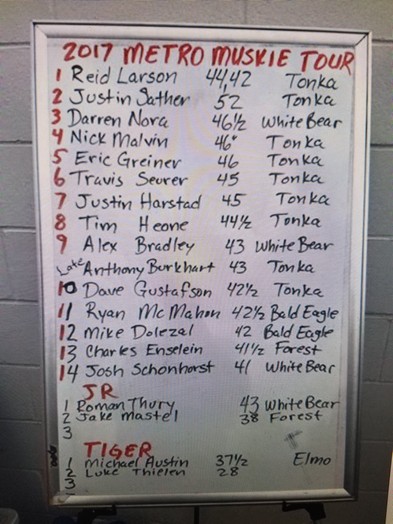 2017 METRO MUSKIE TOUR
1 Reid Larson 44,42 Tonka
2 Justin Sather 52 Tonka
3 Darren Nora 46½ White Bear
4 Nick Malvin 46" Tonka
5 Eric Greiner 46 Tonka
6 Travis Seurer 45 Tonka
7 Justin Harstad 45 Tonka
8 Tim Heone 44½ Tonka
9 Alex Bradley 43 White Bear
Late Anthony Burkhart 43 Tonka
10 Dave Gustafson 42½ Tonka
11 Ryan McMahon 42½ Bald Eagle
12 Mike Dolezal 42 Bald Eagle
13 Charles Enselein 41½ Forest
14 Josh Schonhorst 41 White Bear
JR
1 Roman Thury 43 White Bear
2 Jake Mastel 38 Forest
3
TIGER
1 Michael Austin 37½ Elmo
2 Luke Thielen 28
3